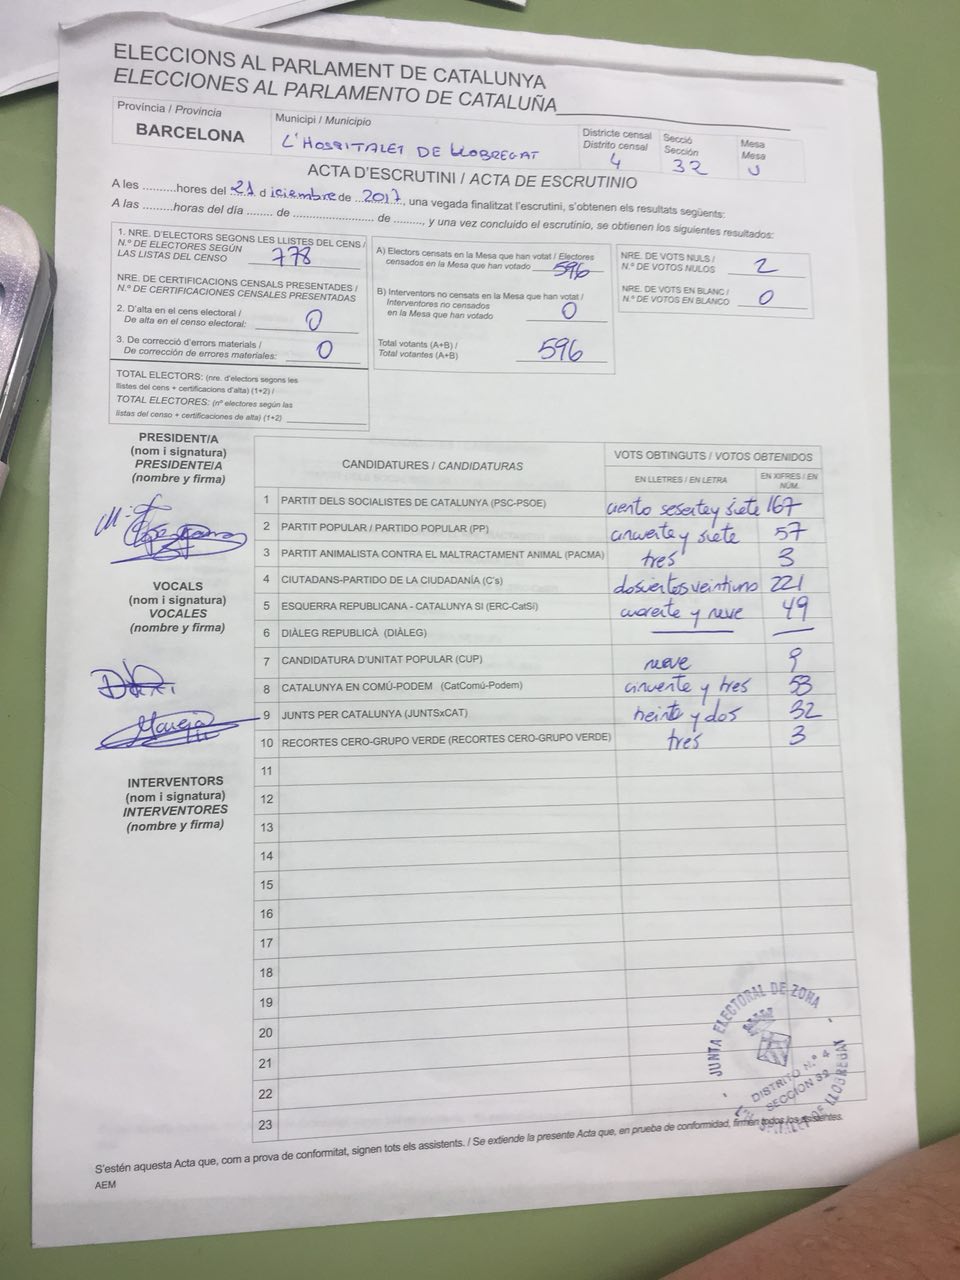 ELECCIONS AL PARLAMENT DE CATALUNYA
ELECCIONES AL PARLAMENTO DE CATALUÑA
Província / Provincia
BARCELONA
Municipi / Municipio
L'HOSPITALET DE LLOBREGAT
Districte censal
Distrito censal
4
Secció
Sección
32
Mesa
Mesa
U
ACTA D'ESCRUTINI / ACTA DE ESCRUTINIO
A les ..........hores del 21 d iciembre de 2017, una vegada finalitzat l'escrutini, s'obtenen els resultats següents:
A las .........horas del día ........ de ......................... de ........., y una vez concluido el escrutinio, se obtienen los siguientes resultados:
1. NRE. D'ELECTORS SEGONS LES LLISTES DEL CENS /
N.º DE ELECTORES SEGÚN
LAS LISTAS DEL CENSO 778
NRE. DE CERTIFICACIONS CENSALS PRESENTADES /
N.º DE CERTIFICACIONES CENSALES PRESENTADAS
2. D'alta en el cens electoral /
De alta en el censo electoral: 0
3. De correcció d'errors materials /
De corrección de errores materiales: 0
TOTAL ELECTORS: (nre. d'electors segons les
llistes del cens + certificacions d'alta) (1+2) /
TOTAL ELECTORES: (nº electores según las
listas del censo + certificaciones de alta) (1+2)
A) Electors censats en la Mesa que han votat / Electores
censados en la Mesa que han votado 596
B) Interventors no censats en la Mesa que han votat /
Interventores no censados
en la Mesa que han votado 0
Total votants (A+B) /
Total votantes (A+B) 596
NRE. DE VOTS NULS /
N.º DE VOTOS NULOS 2
NRE. DE VOTS EN BLANC /
N.º DE VOTOS EN BLANCO 0
PRESIDENT/A
(nom i signatura)
PRESIDENTE/A
(nombre y firma)
VOCALS
(nom i signatura)
VOCALES
(nombre y firma)
INTERVENTORS
(nom i signatura)
INTERVENTORES
(nombre y firma)
CANDIDATURES / CANDIDATURAS
VOTS OBTINGUTS / VOTOS OBTENIDOS
EN LLETRES / EN LETRA
EN XIFRES / EN
NÚM.
1 PARTIT DELS SOCIALISTES DE CATALUNYA (PSC-PSOE) ciento sesenta y siete 167
2 PARTIT POPULAR / PARTIDO POPULAR (PP) cincuenta y siete 57
3 PARTIT ANIMALISTA CONTRA EL MALTRACTAMENT ANIMAL (PACMA) tres 3
4 CIUTADANS-PARTIDO DE LA CIUDADANÍA (C's) doscientos veintiuno 221
5 ESQUERRA REPUBLICANA - CATALUNYA SI (ERC-CatSí) cuarenta y nueve 49
6 DIÀLEG REPUBLICÀ (DIÀLEG)
7 CANDIDATURA D'UNITAT POPULAR (CUP) nueve 9
8 CATALUNYA EN COMÚ-PODEM (CatComú-Podem) cincuenta y tres 53
9 JUNTS PER CATALUNYA (JUNTSxCAT) treinta y dos 32
10 RECORTES CERO-GRUPO VERDE (RECORTES CERO-GRUPO VERDE) tres 3
11
12
13
14
15
16
17
18
19
20
21
22
23
JUNTA ELECTORAL DE ZONA
DISTRITO N.º 4
SECCION 32
S'estén aquesta Acta que, com a prova de conformitat, signen tots els assistents. / Se extiende la presente Acta que, en prueba de conformidad, firman todos los asistentes.
AEM